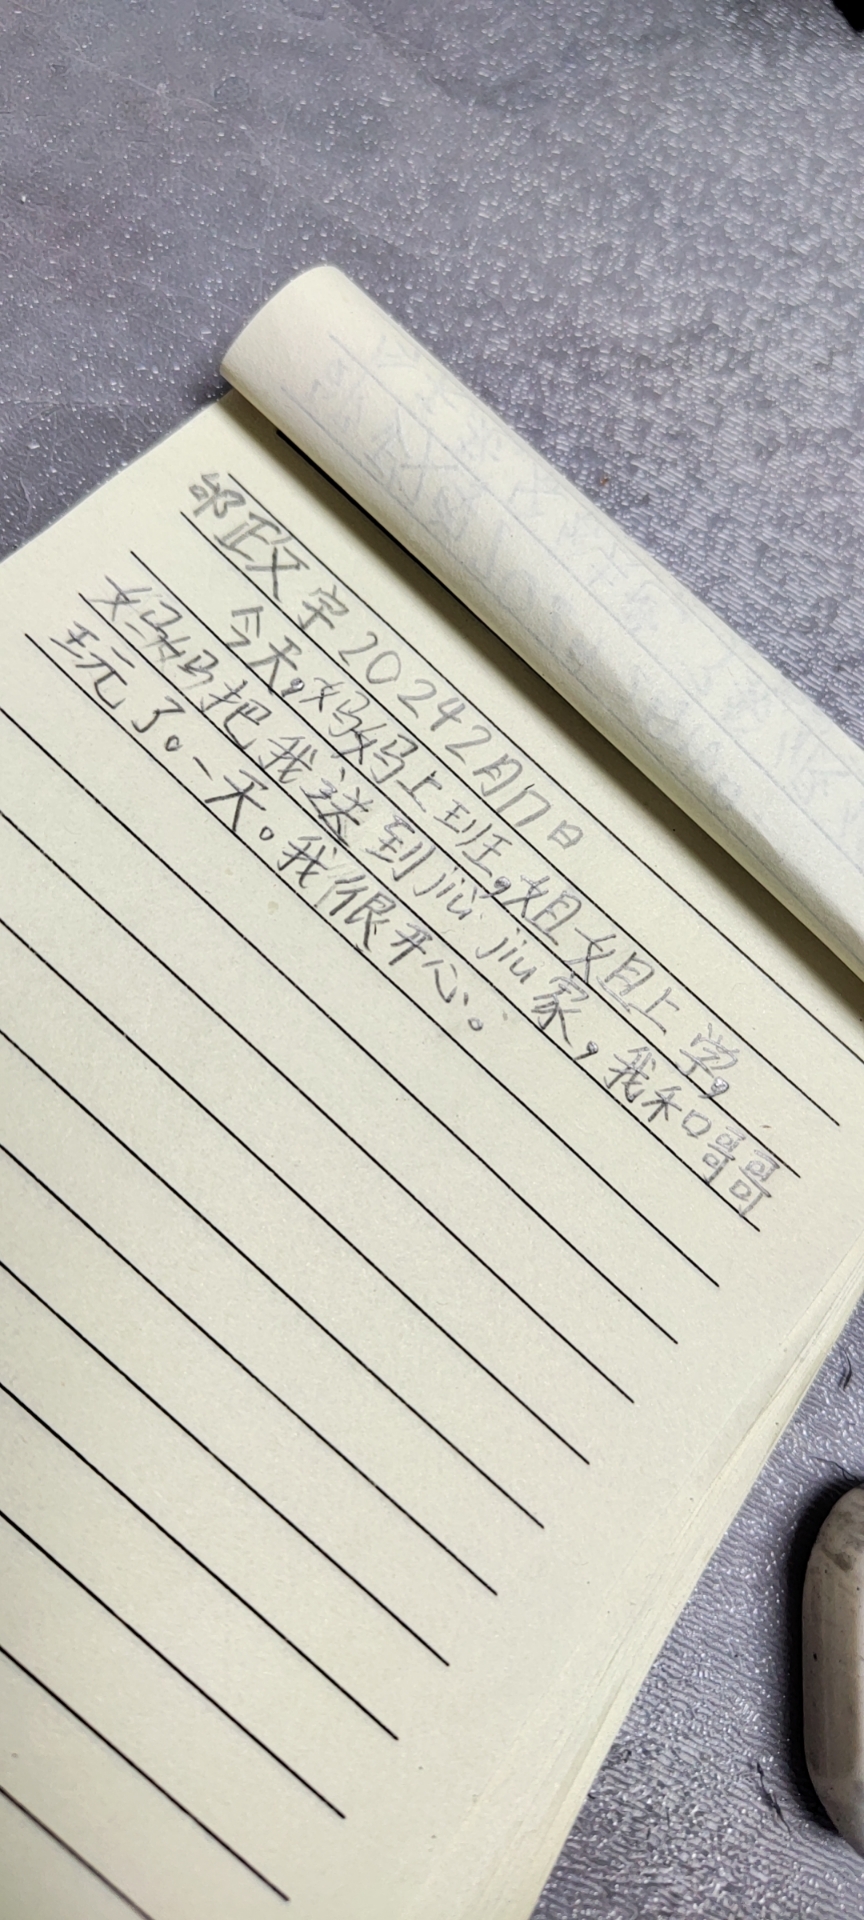 邰政文宇20242月17日
今天,妈妈上班,姐姐上学,
妈妈把我送到jiù jiu家,我和哥哥
玩了。一天。我很开心。